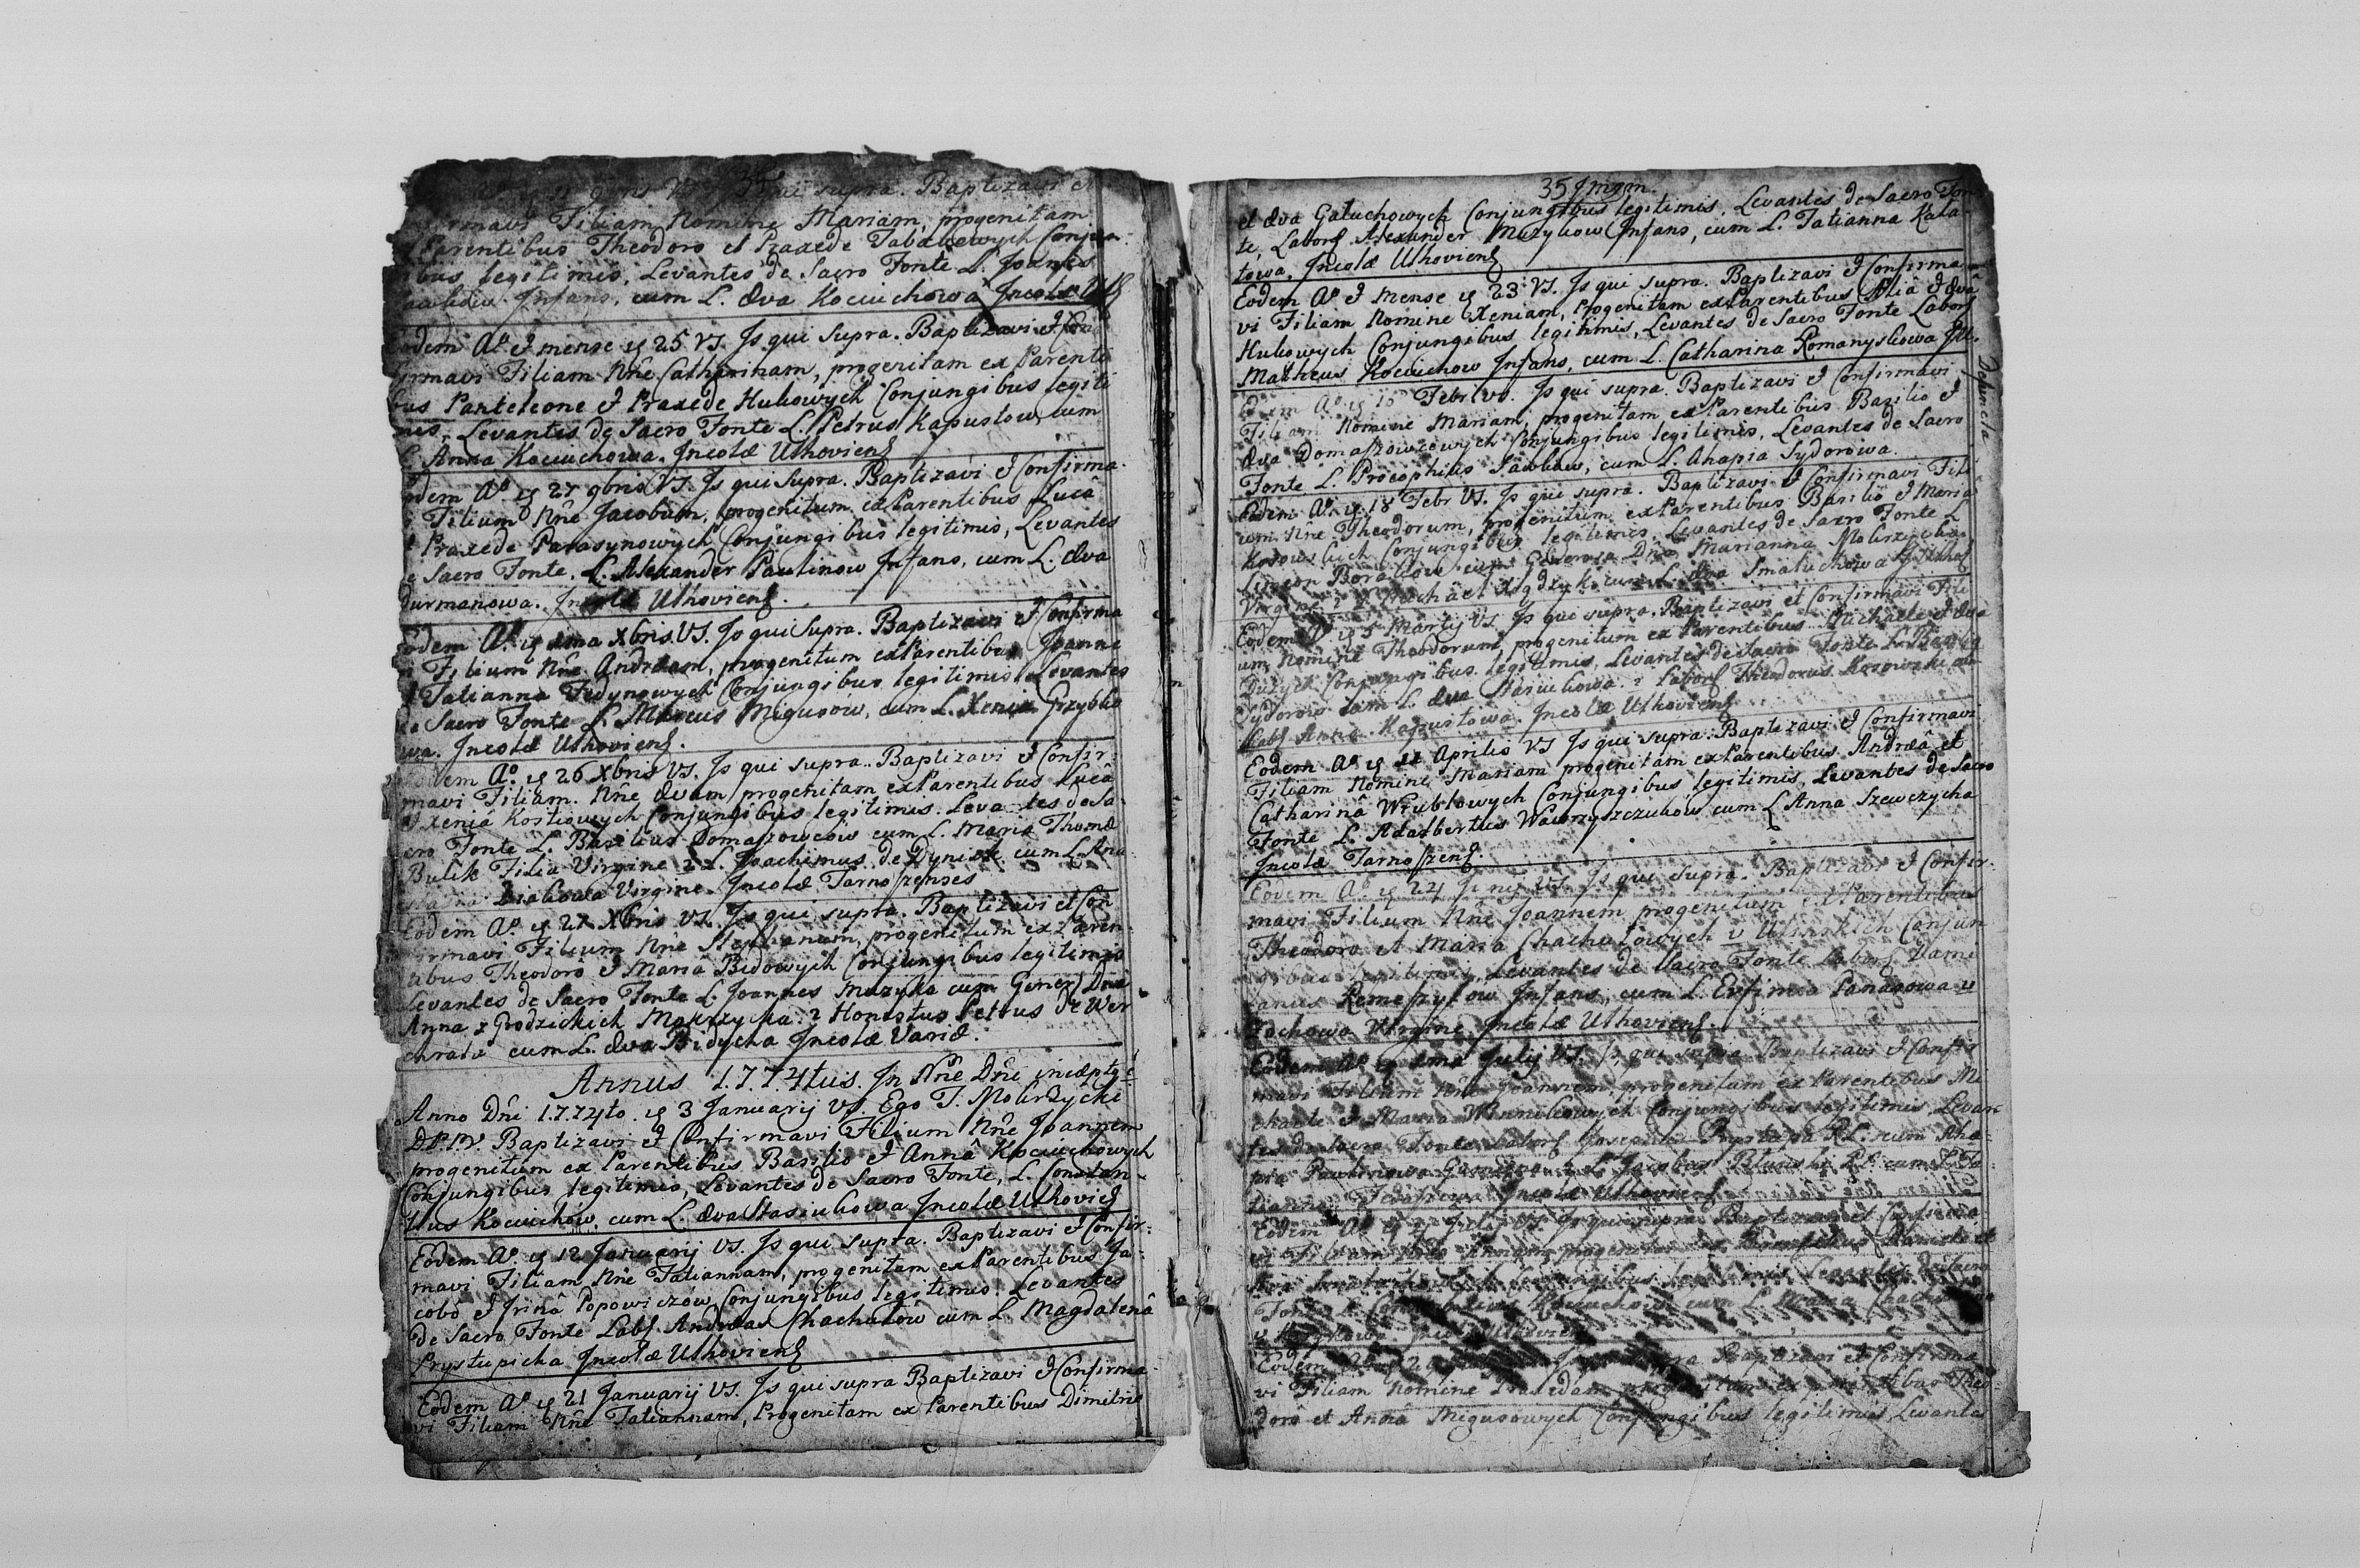 supra. Baptizavi et
Filiam Nomine Mariam, progenitam
Parentibus Theodoro et Praxede Conjun
bus legitimis, Levantes de Sacro Fonte L. Joannes
Infans, cum L. Eva Kociuchowa Incolæ
Eodem Aº. et mense 25 VS. Is qui supra. Baptizavi et
irmavi Filiam Nñe Catharinam, progenitam ex Parenti
bus Panteleone et Praxede Hukowych Conjungibus legiti
mis, Levantes de Sacro Fonte L. Petrus Kapustow, cum
L. Anna Kociuchowa. Incolæ Uhoviens
Eodem Aº. 27 9bris VS. Is qui supra. Baptizavi et Confirma
Filium Nñe Jacobum, progenitum ex Parentibus Lucâ
Praxede Parasynowych Conjungibus legitimis, Levantes
de Sacro Fonte. L. Alexander Paulinow Infans, cum L. Eva
durmanowa. Incolæ Uhoviens.
Eodem Aº. ima Xbris VS. Is qui supra. Baptizavi et Confirma
Filium Nñe Andream, progenitum ex Parentibus Joanne
Tatianna Fedynowych Conjungibus legitimis Levantes
de Sacro Fonte L. Migusow, cum L. Xenia Grzybko
wa. Incolæ Uhoviens.
Eodem Aº. 26 Xbris VS. Is qui supra. Baptizavi et Confir:
mavi Filiam. Nñe Evam progenitam ex Parentibus Lucâ
et Xeniâ Kostiowych Conjungibus legitimis. Levantes de Sa
cro Fonte L. Basilius Domaszowcow cum L. Maria Thomæ
Bulik Filia Virgine 2. L. Joachimus de Dynisk cum L. Ana
Virgine. Incolæ Tarnoszenses
Eodem Aº. 27 Xbris VS. Is qui supra. Baptizavi et Con
firmavi Filium Nñe Stephanum, progenitum ex Paren
tibus Theodorô et Mariâ Bidowych Conjungibus legitimis
Levantes de Sacro Fonte L. Joannes Muzyka cum Gener Dnâ
Anna z Grodzickich Mokrzycka. 2 Honestus Petrus de Wer
chrata cum L. Eva Bidycha Incolæ Variæ.
Annus 1774tus. In Nñe Dñi incæpt
Anno Dñi 1774to. 3 Januarij VS. Ego T. Mokrzycki
D.P.V. Baptizavi et Confirmavi Filium Nñe Joannem
progenitum ex Parentibus Basilio et Annâ Kociuchowych
Conjungibus legitimis, Levantes de Sacro Fonte, L. Constan
tius Kociuchow. cum L. Eva Stasiukowa Incolæ Uhoviens
Eodem Aº. 12 Januarij VS. Is qui supra. Baptizavi et Confir:
mavi Filiam Nñe Tatiannam, progenitam ex Parentibus Ja:
cobô et Irinâ Popowiczow Conjungibus legitimis. Levantes
de Sacro Fonte Labs Andreas Chachułow cum L. Magdalenâ
Prystupicha Incolæ Uhoviens
Eodem Aº. 21 Januarij VS. Is qui supra Baptizavi et Confirma
vi Filiam Nñe Tatiannam, Progenitam ex Parentibus Dimitrio
35
et Eva Gałuchowych Conjungibus legitimis, Levantes de Sacro Fon
te, Labors Alexander Muzykow Infans, cum L. Tatianna Kata
towa, Incolæ Uhoviens
Eodem Aº. et Mense 23 VS. Is qui supra. Baptizavi et Confirma
vi Filiam Nomine Xeniam, Progenitam ex Parentibus Eliâ et Evâ
Hukowych Conjungibus legitimis, Levantes de Sacro Fonte Labors
Matheus Kociuchow Infans, cum L. Catharina Romanyskowa
Defuncta
Eodem Aº. 15 Febr VS. Is qui supra. Baptizavi et Confirmavi
Filiam Nomine Mariam, progenitam ex Parentibus Basilio et
Eva Domaszowcowych Conjungibus legitimis, Levantes de Sacro
Fonte L. Procophius Sawkow, cum L. Ahapia Sydorowa.
Eodem Aº. 18 Febr VS. Is qui supra. Baptizavi et Confirmavi Fili
um Nñe Theodorum, progenitum ex Parentibus Basilio et Mariâ
Kosowskich Conjungibus legitimis. Levantes de Sacro Fonte L
Simeon cum Generosa Dña Marianna Mokrzycka
Virgine 2 cum L. Eva Smałuchowa
Eodem Aº. 5 Martij VS. Is qui supra. Baptizavi et Confirmavi Fili
um Nomine Theodorum, progenitum ex Parentibus Michaele et Eva
Duzych Conjungibus legitimis, Levantes de Sacro Fonte L. Basilius
Sydorow cum L. Eva Stasiukowa. 2 Labors Theodorus Kosowski cum
Labs Anna Kapustowa. Incolæ Uhoviens
Eodem Aº. 11 Aprilis VS Is qui supra. Baptizavi et Confirmavi
Filiam Nomine Mariam progenitam ex Parentibus Andreâ et
Catharinâ Wrublowych Conjungibus legitimis Levantes de Sacro
Fonte L. Adalbertus Wawryszczukow cum L Anna Szewczycha
Incolæ Tarnoszens.
Eodem Aº. 24 VS. Is qui supra. Baptizavi et Confir:
mavi Filium Nñe Joannem progenitum ex Parentibus
Theodoro et Maria Chachułowych Conjun
gibus legitimis, Levantes de Sacro Fonte Labors Dami
anus Remeszyłow Infans, cum L. Eufimia Panasowa
Virgine Incolæ Uhoviens.
Eodem Aº. ima Julij VS. Is qui supra Baptizavi et Confir
mavi Filium Nñe Joannem progenitum ex Parentibus Mi
chaele et Maria Conjungibus legitimis Levan
tes de Sacro Fonte Labors Prystupa cum Aha
pia Paulinowa 2 L. Jacobus cum L. Ta
tianna Incolæ Uhoviens
Eodem Aº. Julij VS. Is qui supra Baptizavi et Confirma
vi Filiam progenitam ex Parentibus Daniele et
Eva Conjungibus legitimis Levantes de Sacro
Fonte L. Constantius Kociuchow cum L. Maria
Incolæ Uhoviens
Eodem Baptizavi et Confirma
vi Filiam Nomine Praxedam progenitam ex parentibus Theo
dorô et Annâ Migusowych Conjungibus legitimis, Levantes